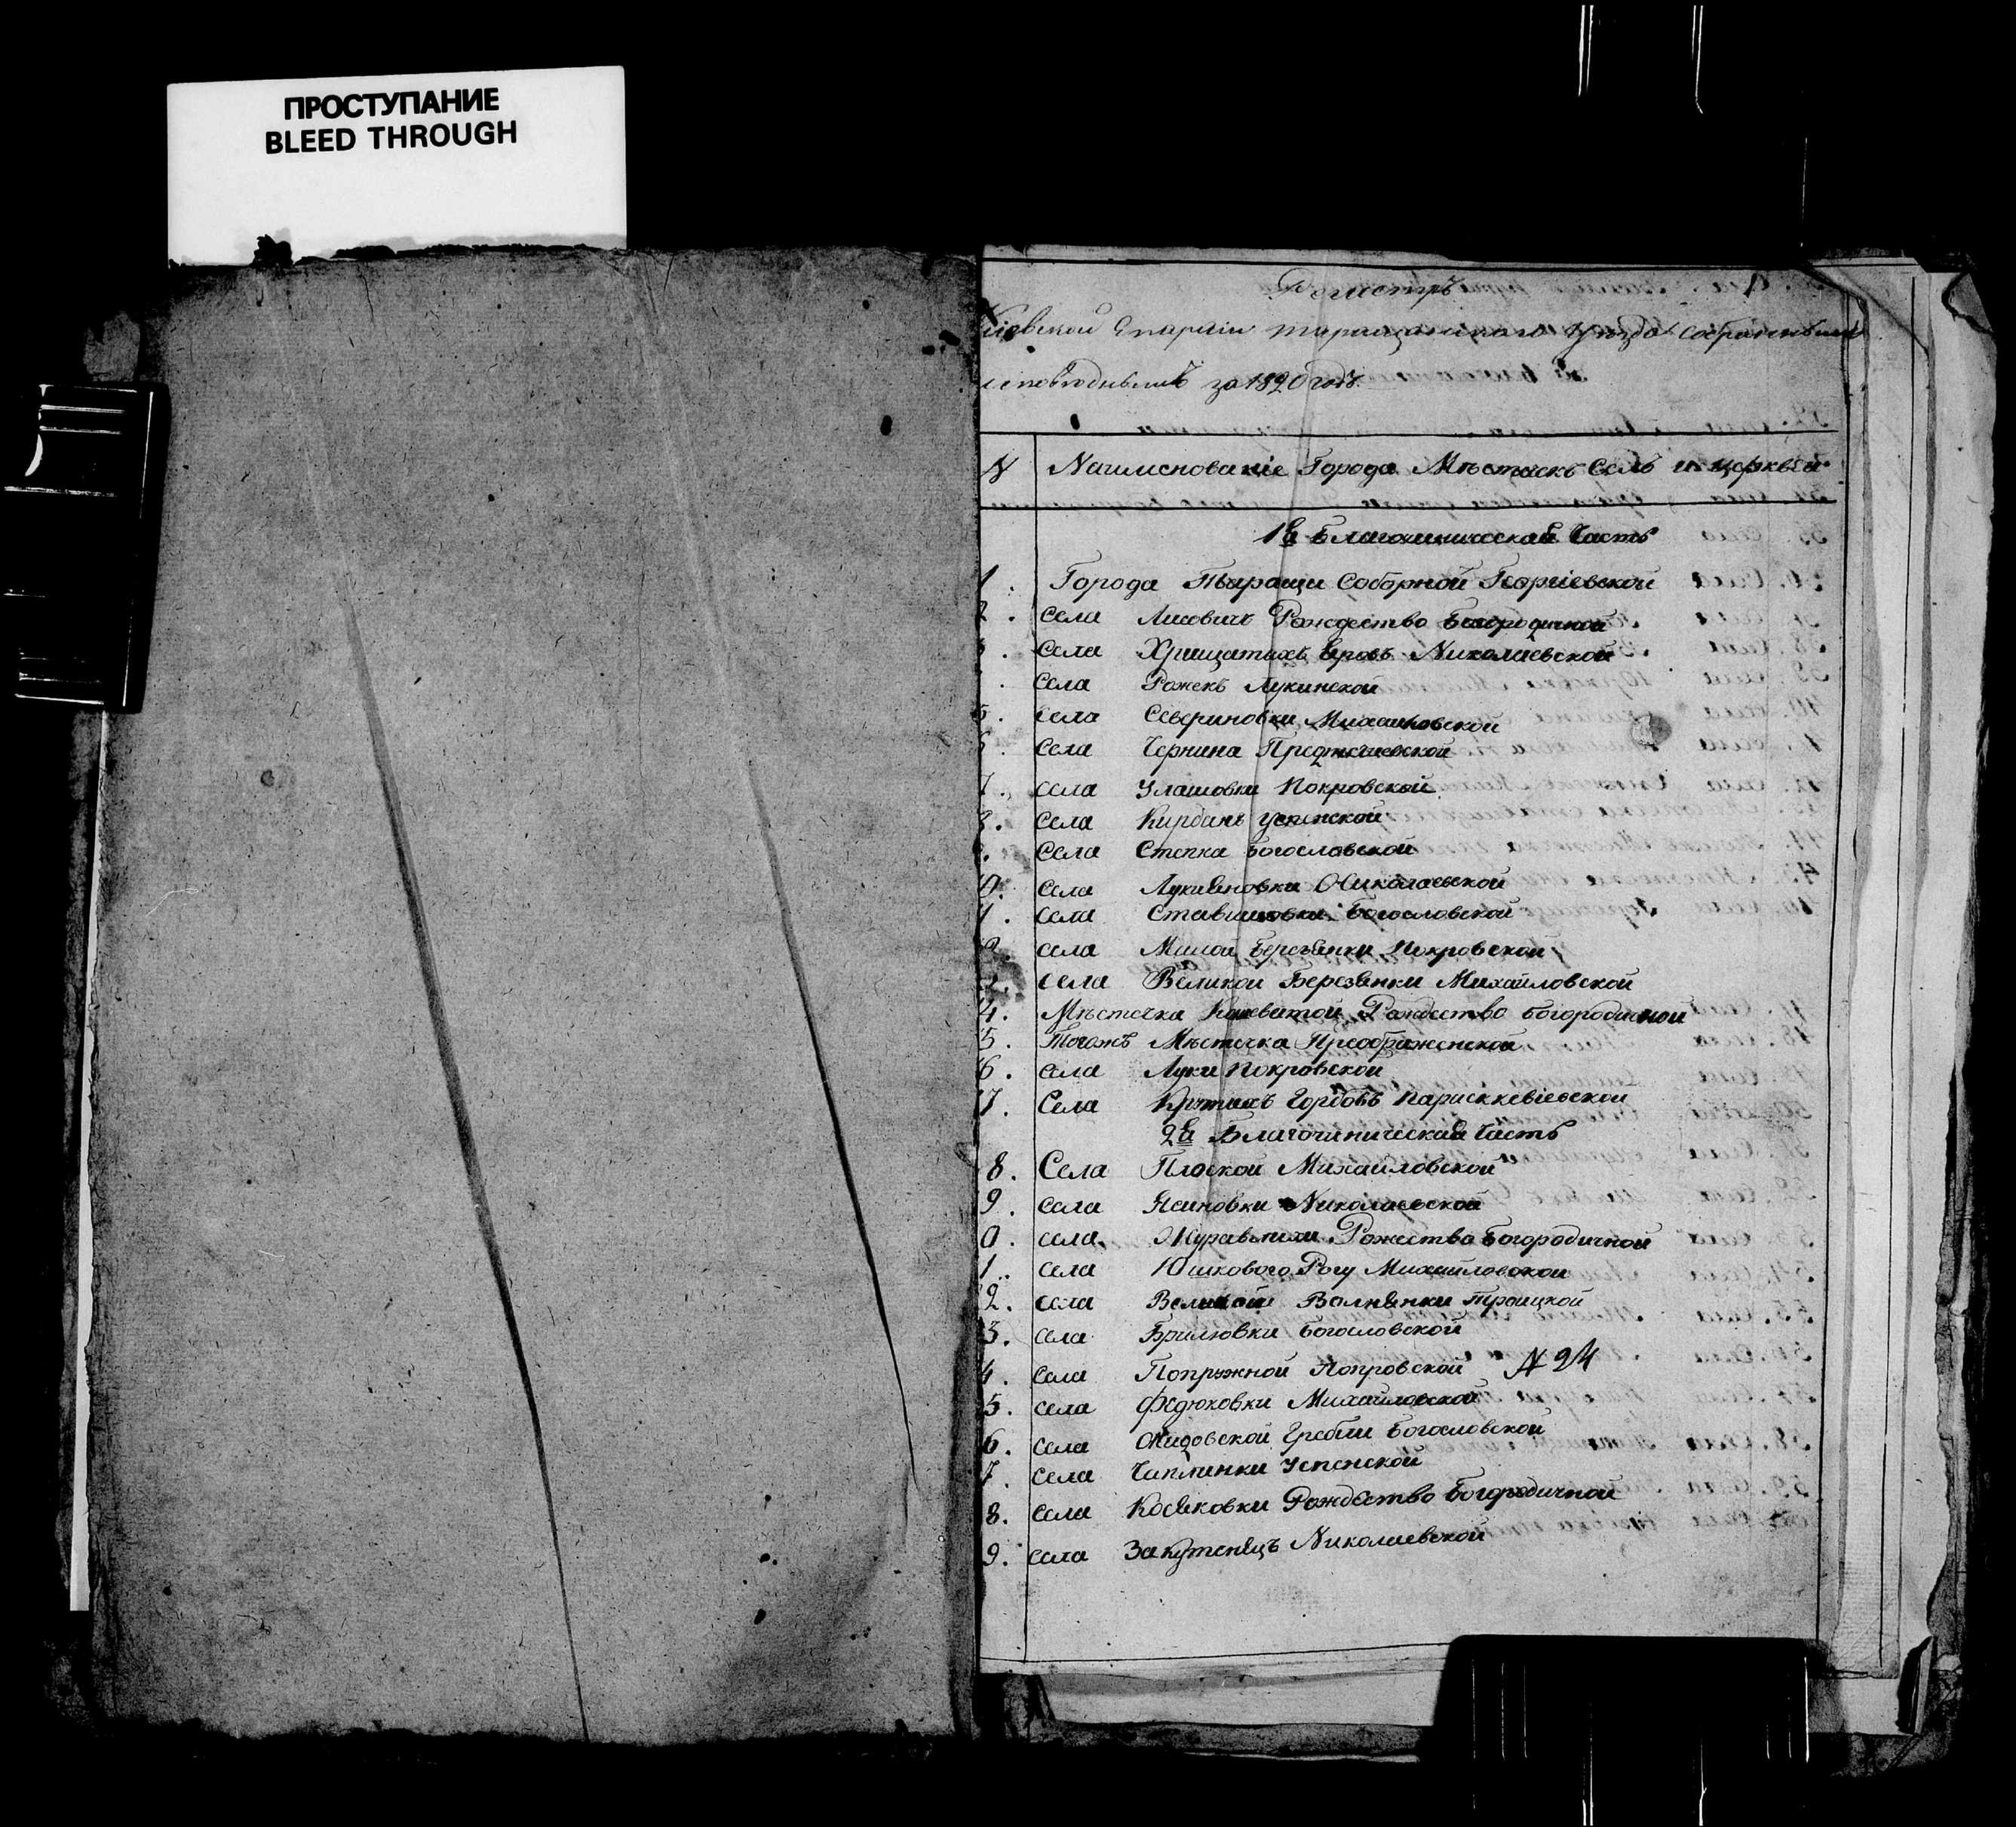 ПРОСТУПАНИЕ
BLEED THROUGH
Регистръ
Кіевской Епархіи таращанского уѣзда
за 1820 годъ.
N Наименованіе Города Мѣстѣчкъ Селъ и церквей
1я Благочиническая Часть
1. Города Таращи Соборной Георгіевской
2. Села Лисовичъ Рождество Богородичной
3. Села Хрищатыхъ Яровъ Николаевской
Села Рожекъ Лукинской
5. Села Севериновки Михайловской
6. Села Чернина Предтечевской
7. Села Улашовки Покровской
8. Села Кирданъ Успенской
Села Степка Богословской
0. Села Лукияновки Николаевской
1. Села Ставишовки Богословской
2. Села Малой Березянки Покровской
3. Села Великой Березянки Михайловской
4. Мѣстечка Кошеватой Рождество Богородичной
5. Тогожъ Мѣстечка Преображенской
6. Села Луки Покровской
7. Села Крутыхъ Горбовъ Параскевіевской
2я Благочиническая Часть
8. Села Плоской Михайловской
9. Села Ясиновки Николаевской
0. Села Журавлихи Рожество Богородичной
1. Села Юшкового Рогу Михайловской
2. Села Великой Волнянки Троицкой
3. Села Брилювки Богословской
4. Села Попружной Покровской N 24
5. Села Федюковки Михайловской
6. Села Жидовской Гребли Богословской
7. Села Чаплинки Успенской
8. Села Косяковки Рождество Богородичной
9. Села Закутенецъ Николаевской